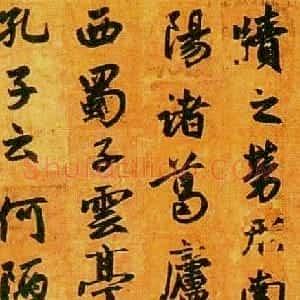 牘之勞形南
陽諸葛廬
西蜀子雲亭
孔子云何陋